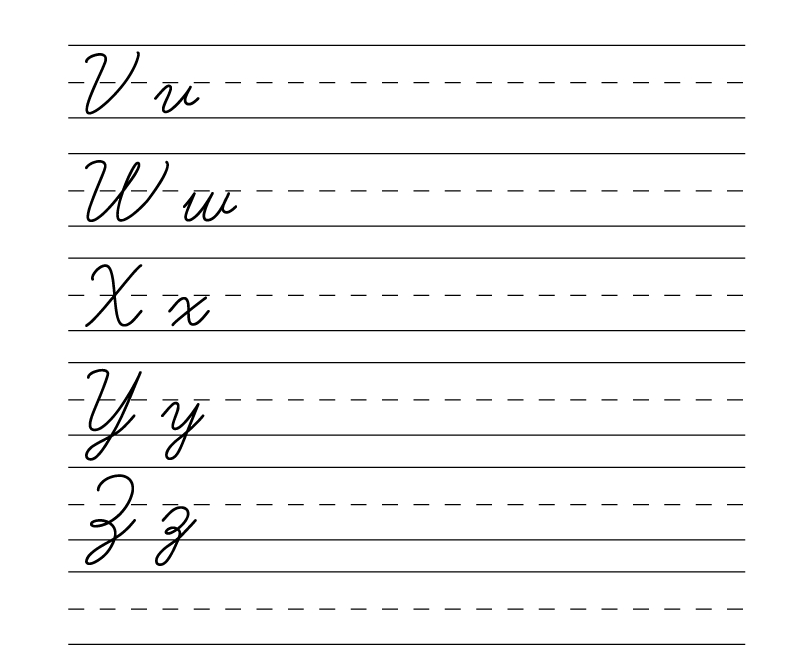 V v
W w
X x
Y y
Z z